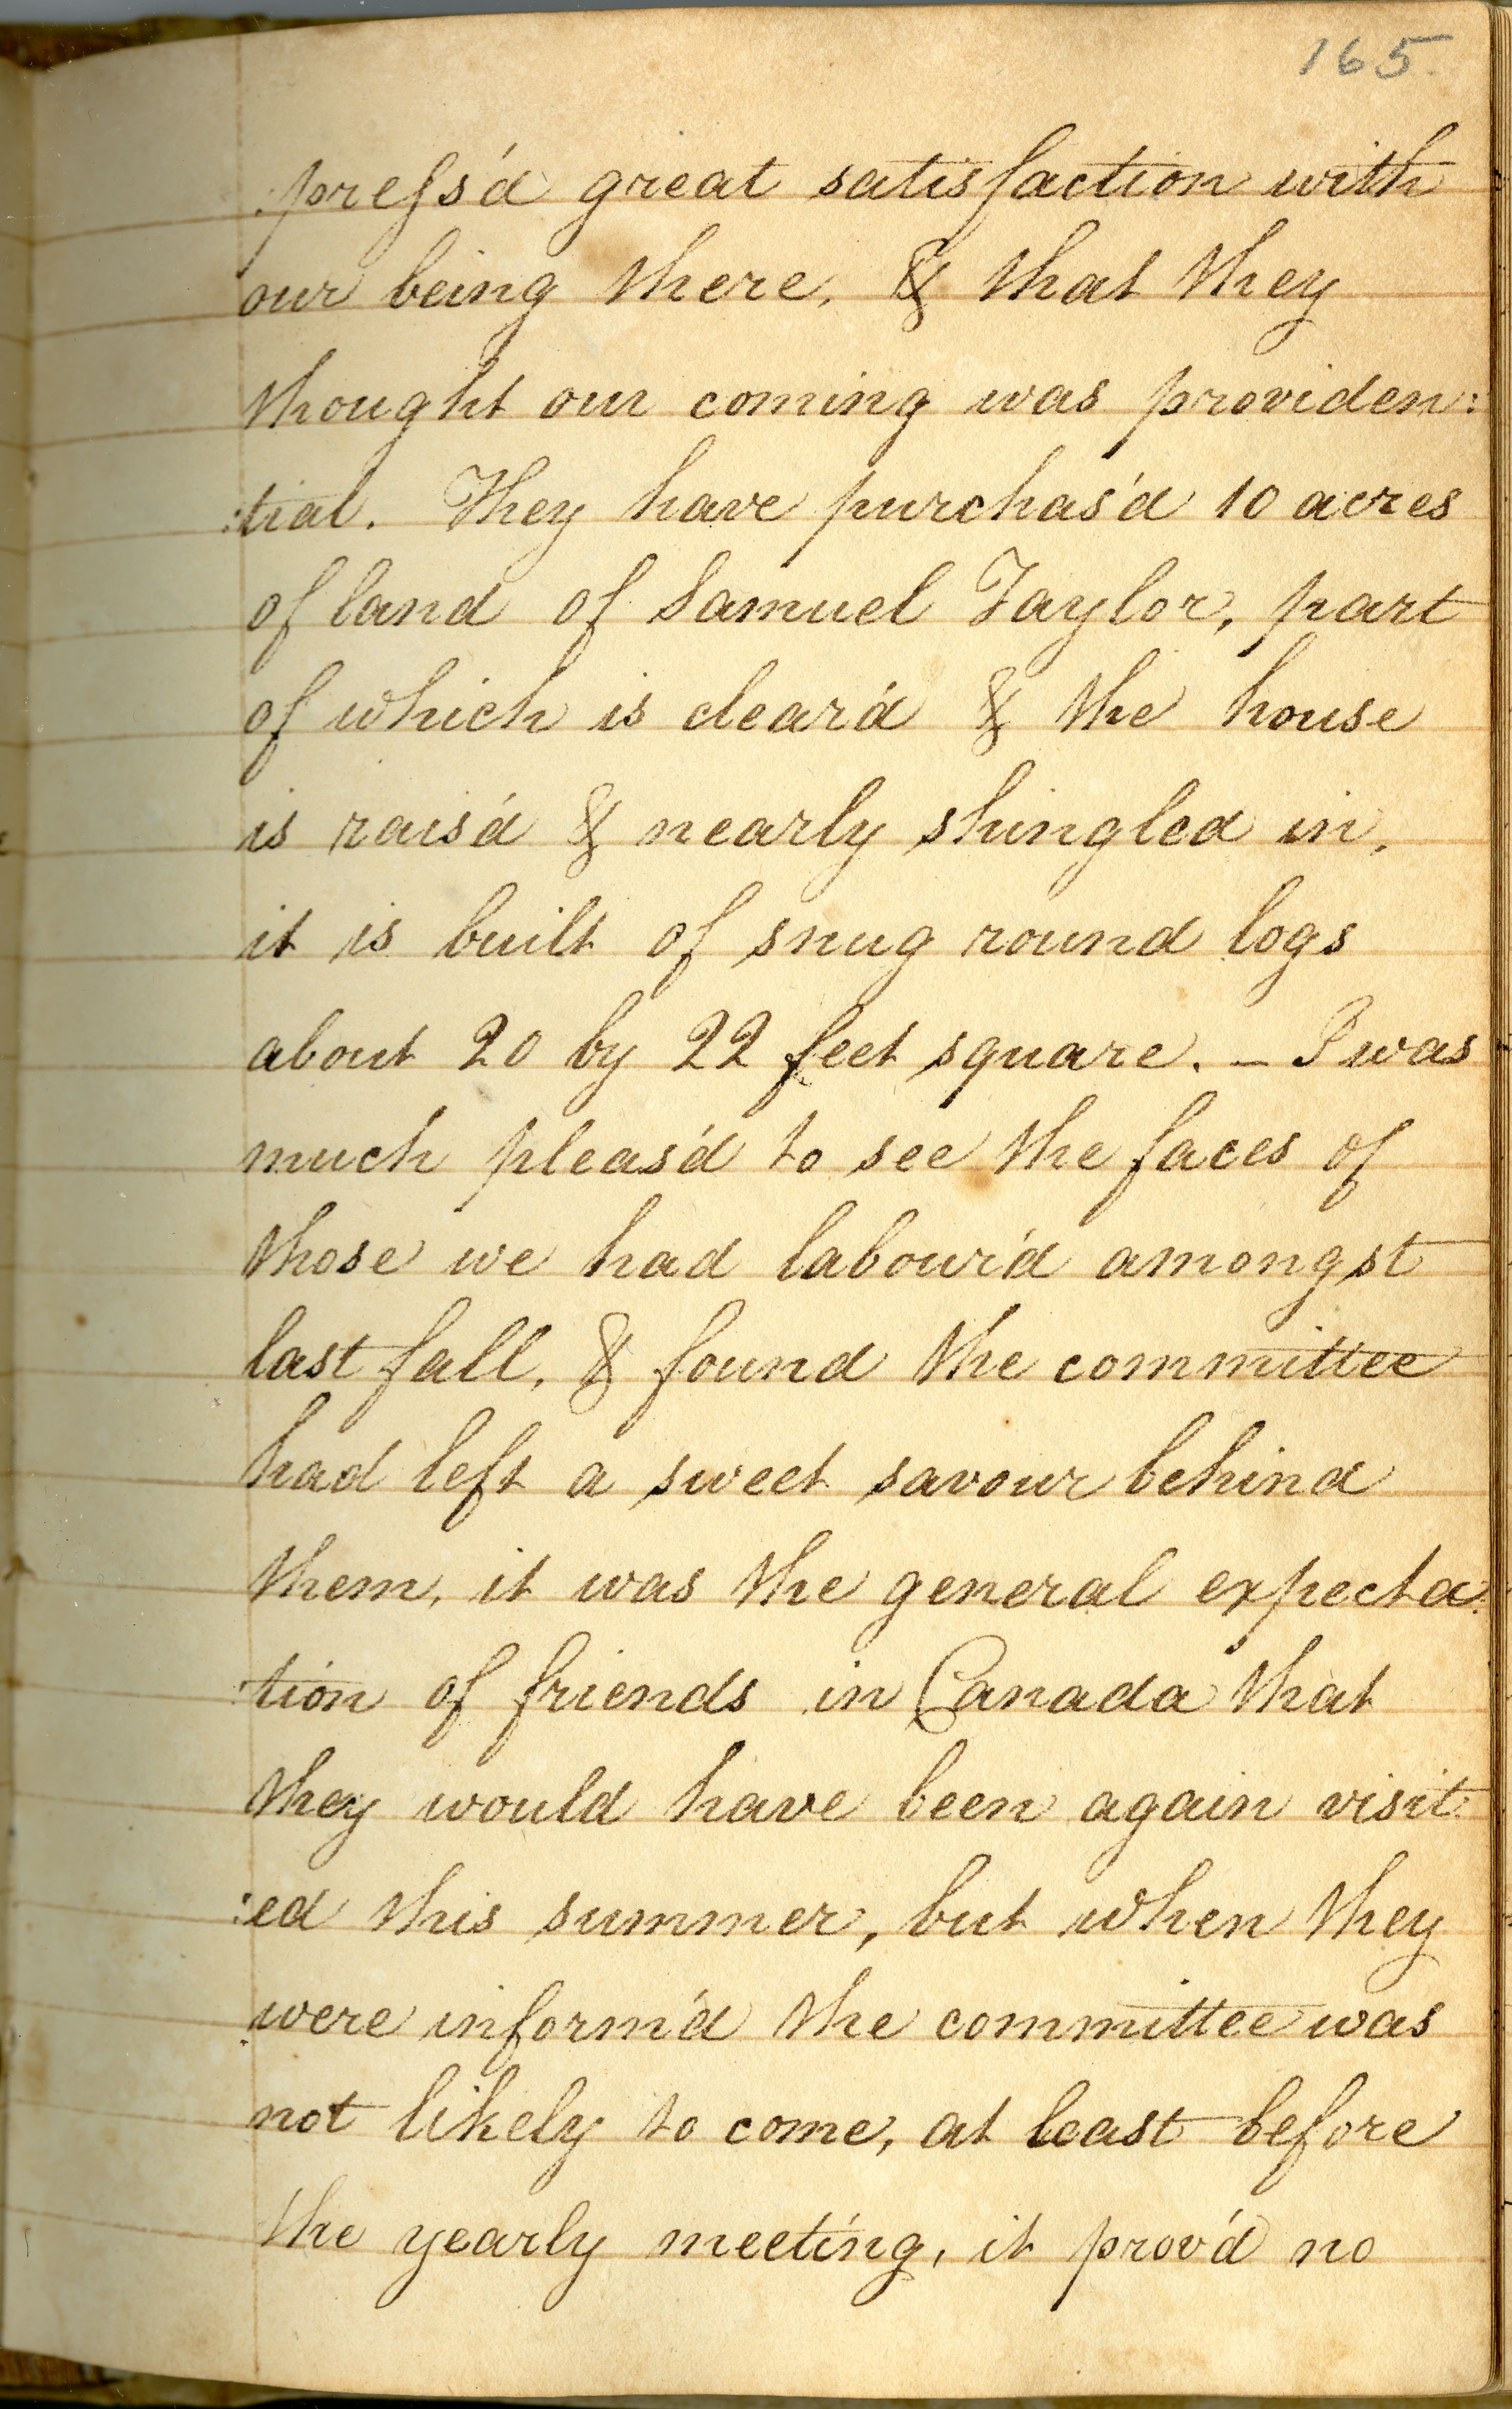 165.
:press'd great satisfaction with
our being there, & that they
thought our coming was providen:
:tial. They have purchas'd 10 acres
of land of Samuel Taylor, part
of which is clear'd & the house
is rais'd & nearly shingled in,
it is built of snug round logs
about 20 by 22 feet square. – I was
much pleas'd to see the faces of
those we had labour'd amongst
last fall, & found the committee
had left a sweet savour behind
them, it was the general expecta:
:tion of friends in Canada that
they would have been again visit:
:ed this summer, but when they
were inform'd the committee was
not likely to come, at least before
the yearly meeting, it prov'd no